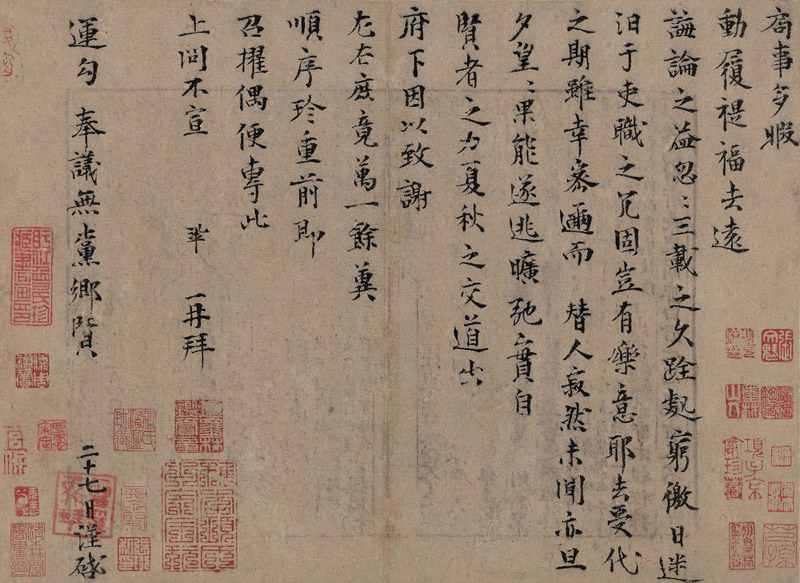 局事多暇
動履禔福去遠
誨論之益忽〻三載之久跧處窮徼日迷
汩于吏職之冗固豈有樂意耶去受代
之期雖幸密邇而 替人寂然未聞亦旦
夕望〻果能遂逃曠弛實自
賢者之力夏秋之交道出
府下因以致謝
左右庶竟萬一餘冀
順序珍重前即
召擢偶便專此
上問不宣 鞏 再拜
運勾 奉議無黨鄉賢 二十七日謹啓
項子京家珍藏